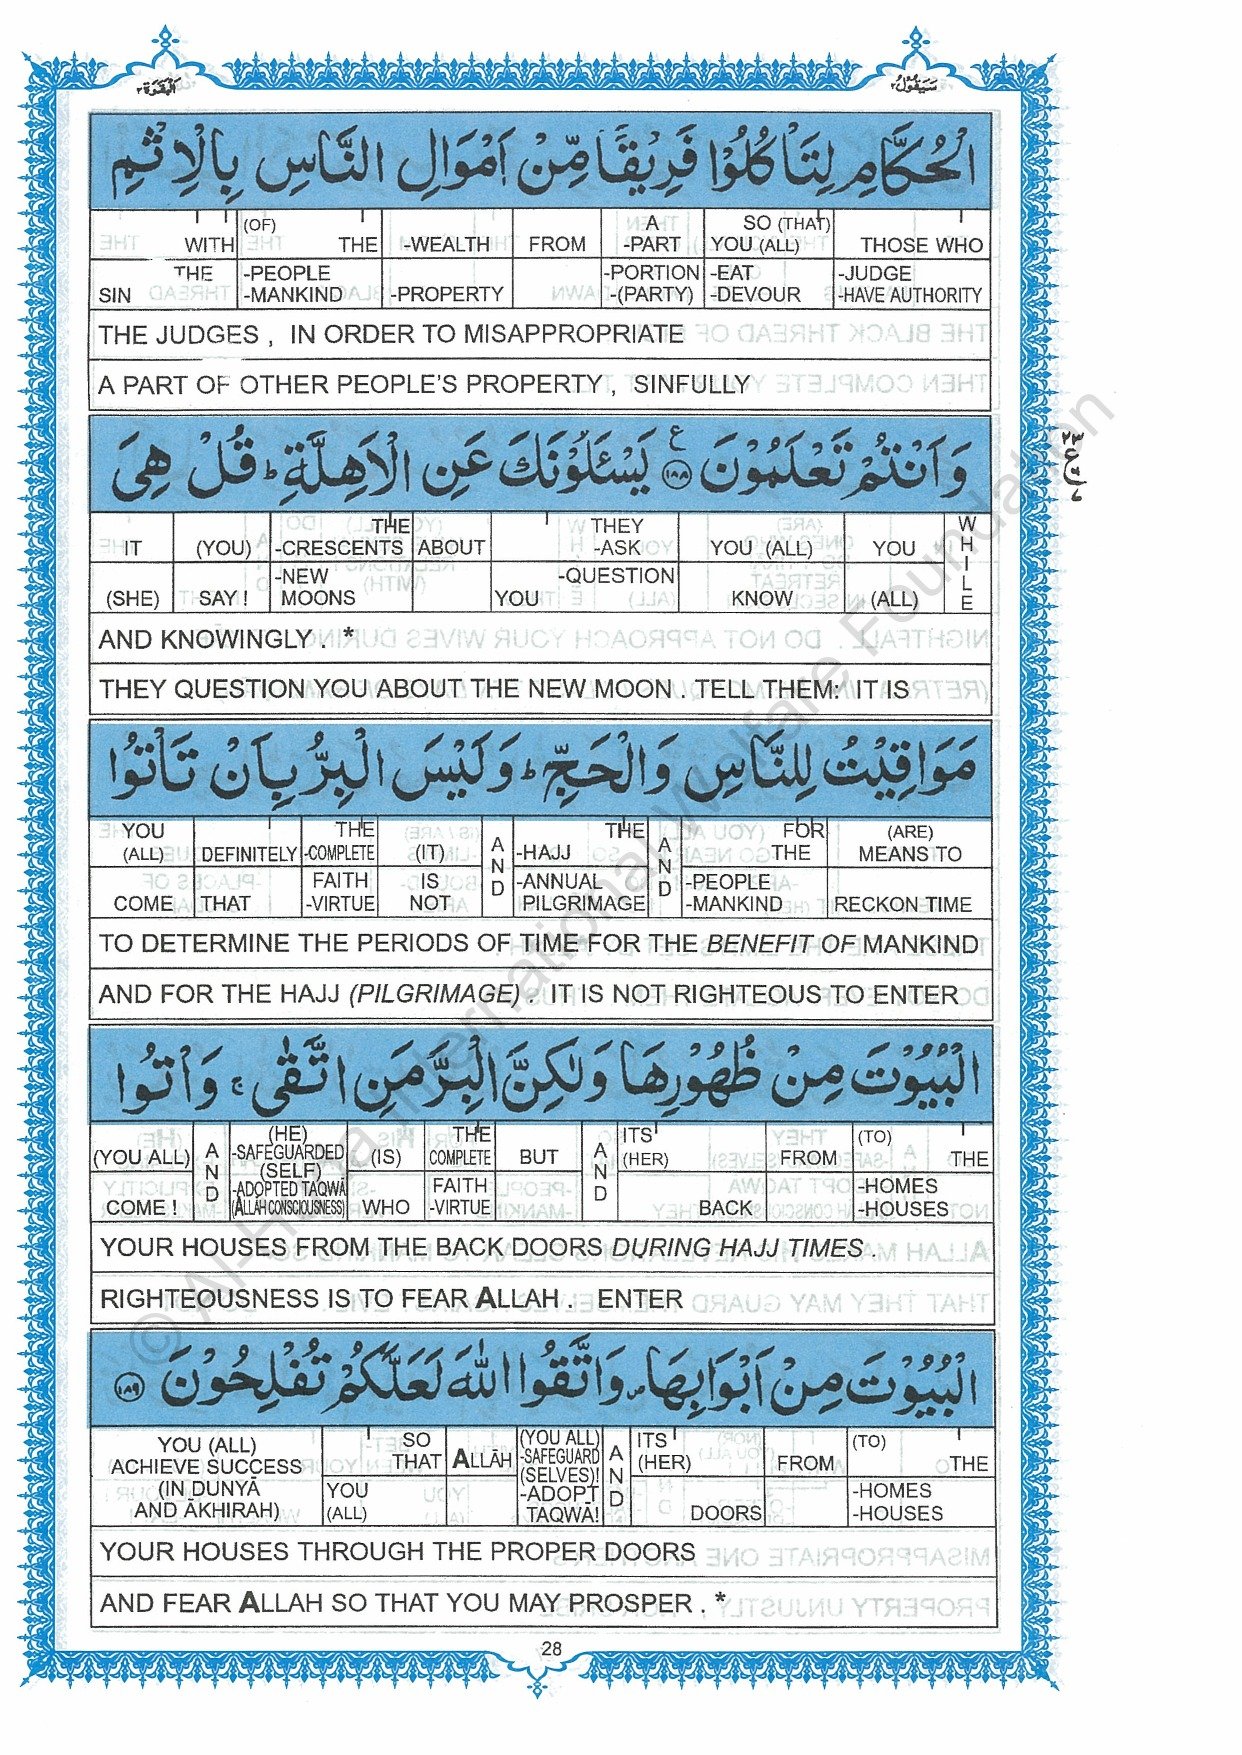 البقرة ٢
سيقول ٢
الْحُكَّامِ لِتَاْكُلُوْا فَرِيْقًا مِّنْ اَمْوَالِ النَّاسِ بِالْاِثْمِ
WITH (OF) THE -WEALTH FROM A -PART SO (THAT) YOU (ALL) THOSE WHO
THE SIN -PEOPLE -MANKIND -PROPERTY -PORTION -(PARTY) -EAT -DEVOUR -JUDGE -HAVE AUTHORITY
THE JUDGES , IN ORDER TO MISAPPROPRIATE
A PART OF OTHER PEOPLE'S PROPERTY , SINFULLY
وَاَنْتُمْ تَعْلَمُوْنَ ١٨٨ ع يَسْـَٔلُوْنَكَ عَنِ الْاَهِلَّةِ ؕ قُلْ هِىَ
IT (YOU) THE -CRESCENTS ABOUT THEY -ASK YOU (ALL) YOU WHILE
(SHE) SAY ! -NEW MOONS YOU -QUESTION KNOW (ALL)
AND KNOWINGLY . *
THEY QUESTION YOU ABOUT THE NEW MOON . TELL THEM: IT IS
مَوَاقِيْتُ لِلنَّاسِ وَالْحَجِّ ؕ وَلَيْسَ الْبِرُّ بِاَنْ تَاْتُوا
YOU (ALL) DEFINITELY THE -COMPLETE (IT) AND THE -HAJJ AND FOR THE (ARE) MEANS TO
COME THAT FAITH -VIRTUE IS NOT -ANNUAL PILGRIMAGE -PEOPLE -MANKIND RECKON TIME
TO DETERMINE THE PERIODS OF TIME FOR THE BENEFIT OF MANKIND
AND FOR THE HAJJ (PILGRIMAGE) . IT IS NOT RIGHTEOUS TO ENTER
الْبُيُوْتَ مِنْ ظُهُوْرِهَا وَلٰكِنَّ الْبِرَّ مَنِ اتَّقٰى ۚ وَاْتُوا
(YOU ALL) AND (HE) -SAFEGUARDED (SELF) (IS) THE COMPLETE BUT AND ITS (HER) FROM (TO) THE
COME ! -ADOPTED TAQWĀ (ALLAH CONSCIOUSNESS) WHO FAITH -VIRTUE BACK -HOMES -HOUSES
YOUR HOUSES FROM THE BACK DOORS DURING HAJJ TIMES .
RIGHTEOUSNESS IS TO FEAR ALLAH . ENTER
الْبُيُوْتَ مِنْ اَبْوَابِهَا ۪ وَاتَّقُوا اللّٰهَ لَعَلَّكُمْ تُفْلِحُوْنَ ١٨٩
YOU (ALL) ACHIEVE SUCCESS SO THAT ALLĀH (YOU ALL) -SAFEGUARD (SELVES)! AND ITS (HER) FROM (TO) THE
(IN DUNYĀ AND ĀKHIRAH) YOU (ALL) -ADOPT TAQWĀ! DOORS -HOMES -HOUSES
YOUR HOUSES THROUGH THE PROPER DOORS
AND FEAR ALLAH SO THAT YOU MAY PROSPER . *
28
٢٣
ع
© Al-Huda International Welfare Foundation